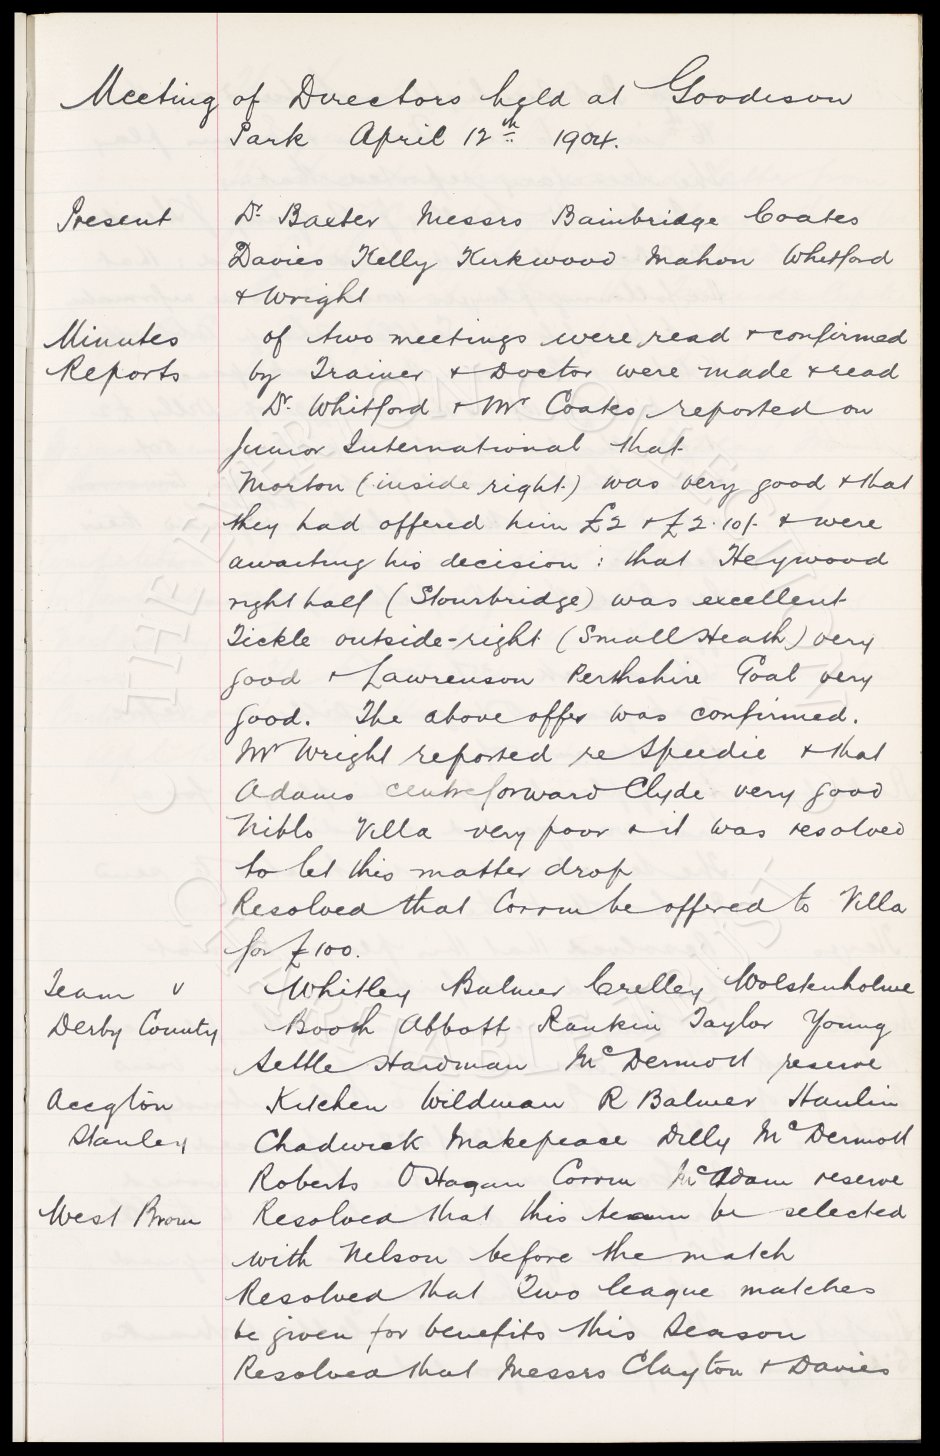 Meeting of Directors held at Goodison
Park April 12th 1904.
Present Dr. Baxter Messrs Bainbridge Coates
Davies Kelly Kirkwood Mahon Whitford
& Wright
Minutes of two meetings were read & confirmed
Reports by Trainer & Doctor were made & read
Dr. Whitford & Mr Coates reported on
Junior International that
Morton (inside right) was very good & that
they had offered him £2 & £2.10/- & were
awaiting his decision: that Heywood
right half (Stourbridge) was excellent
Tickle outside-right (Small Heath) very
good & Lawrenson Perthshire Goal very
good. The above offer was confirmed.
Mr Wright reported re Speedie & that
Adams centre forward Clyde very good
Niblo Villa very poor & it was resolved
to let this matter drop
Resolved that Corrin be offered to Villa
for £100.
Team v Whitley Balmer Crelley Wolstenholme
Derby County Booth Abbott Rankin Taylor Young
Settle Hardman McDermott reserve
Accgton Kitchen Wildman R Balmer Hanlin
Stanley Chadwick Makepeace Dilly McDermott
Roberts O'Hagan Corrin McAdam reserve
West Brom Resolved that this team be selected
with Nelson before the match
Resolved that Two league matches
be given for benefits this Season
Resolved that Messrs Clayton & Davies